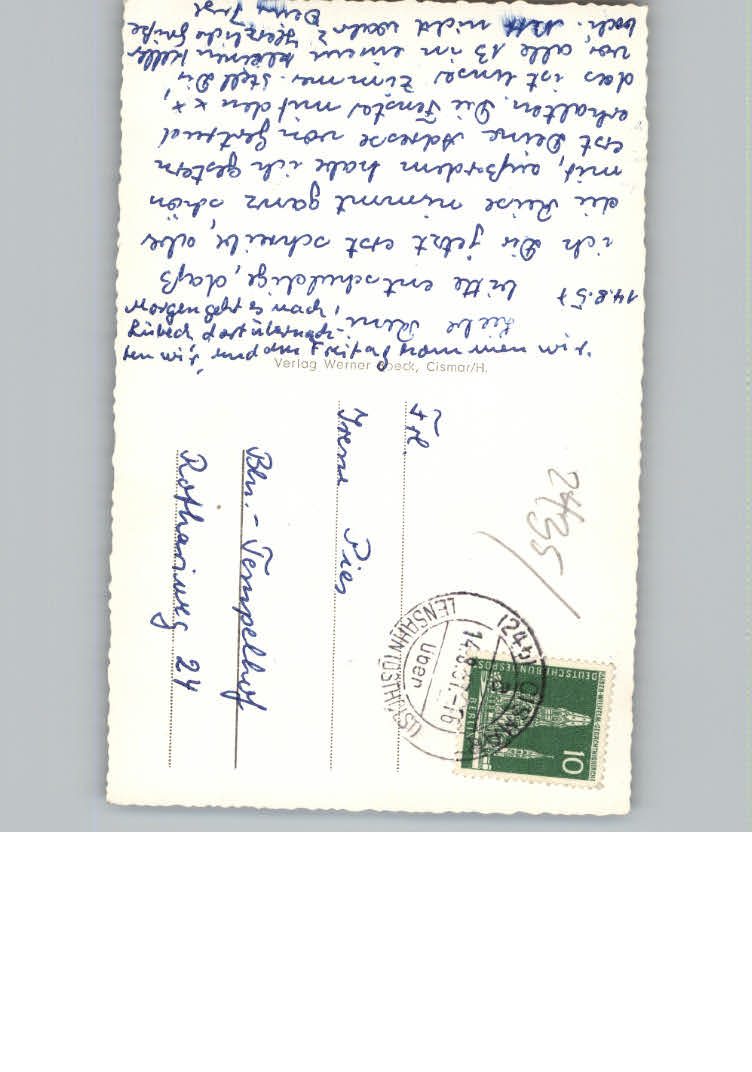 14.8.57
Liebe Reni
bitte entschuldige, daß
ich Dir jetzt erst schreibe, aber
die Reise nimmt ganz schön
mit, außerdem habe ich gestern
erst Deine Adresse von Gertrud
erhalten. Die Fenster mit den x x,
das ist unser Zimmer. Stell Dir
vor, alle 13 in einem kleinen Keller
loch. Nett nicht wahr? Herzliche Grüße
Deine
Morgen geht es nach
Lübeck, dort übernach-
ten wir, und am Freitag kommen
wir
Verlag Werner Boeck, Cismar/H.
Irene Pies
Bln.-Tempelhof
Rothariweg 24
2435
(24b)
14.8.57-16
über
LENSAHN (OSTHOLST)
10
DEUTSCHE BUNDESPOST
BERLIN
KAISER-WILHELM-GEDÄCHTNISKIRCHE